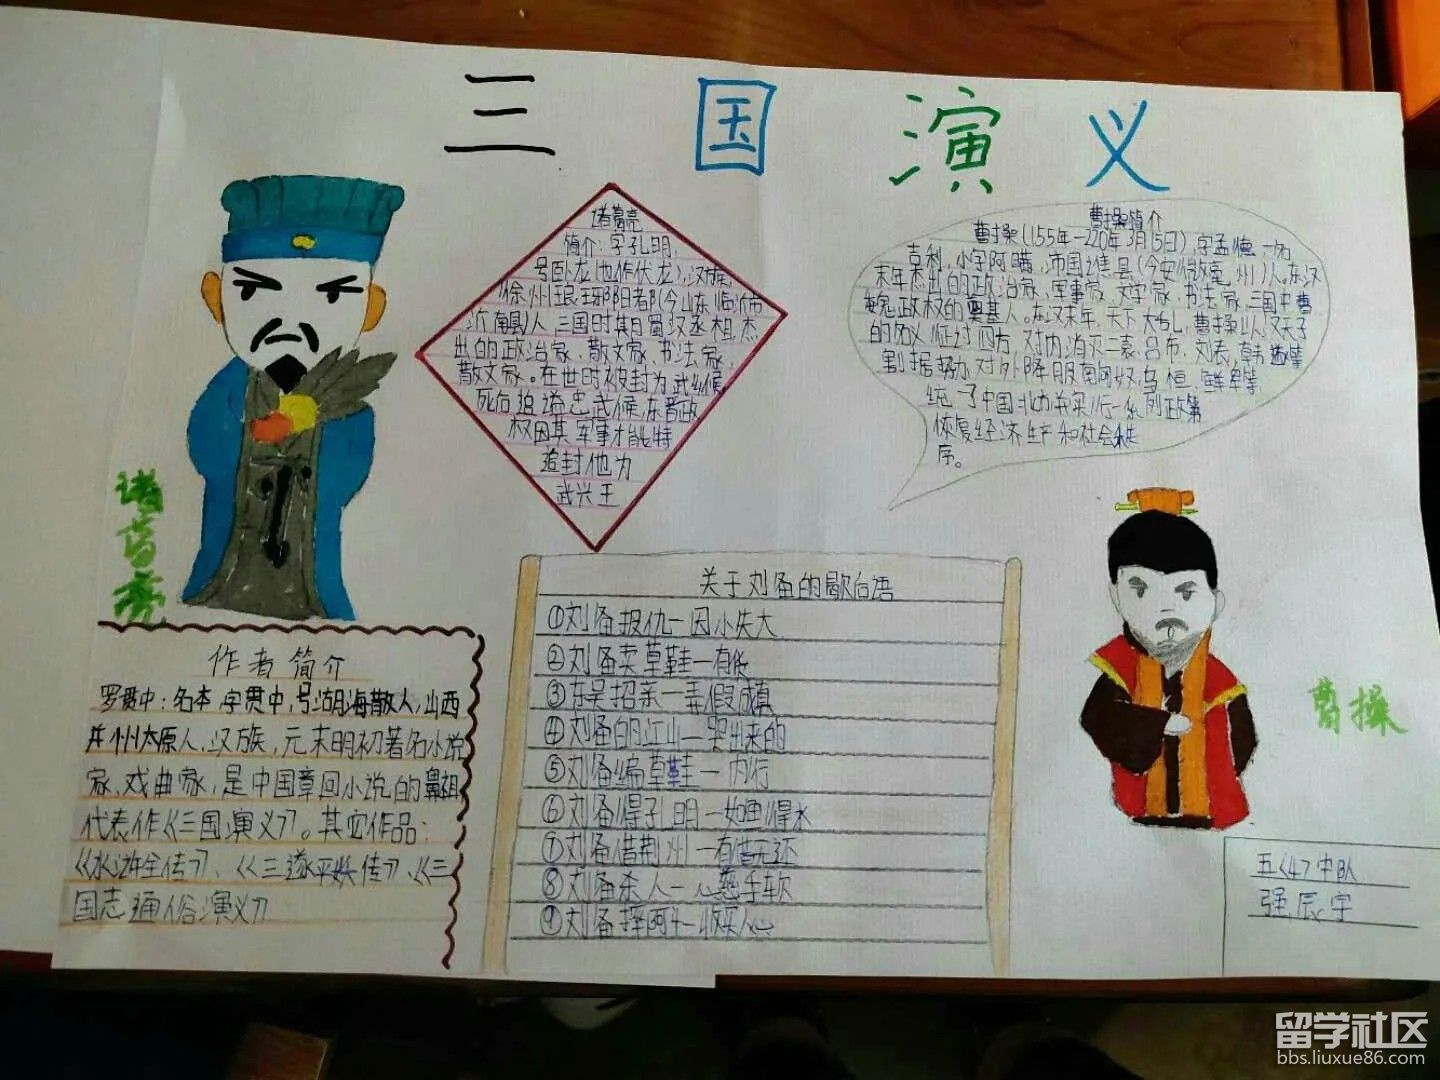 三国演义
诸葛亮
简介:字孔明,
号卧龙(也作伏龙),汉族,
徐州琅琊阳都(今山东临沂市
沂南县)人 三国时期蜀汉丞相 杰
出的政治家、散文家、书法家、
散文家。在世时被封为武乡候
死后追谥忠武候,东晋政
权因其军事才能特
追封他为
武兴王
曹操简介
曹操(155年-220年3月15日)字孟德 一为
吉利,小字阿瞒,沛国谯县(今安徽亳州)人。东汉
末年杰出的政治家、军事家、文学家、书法家,三国中曹
魏政权的奠基人。东汉末年,天下大乱,曹操以汉天子
的名义征讨四方 对内消灭二袁、吕布、刘表,韩遂等
割据势力 对外降服南匈奴乌恒、鲜卑等
统了中国北方并实行一系列政策
恢复经济生产和社会秩
序。
诸葛亮
曹操
作者简介
罗贯中:名本,字贯中,号湖海散人,山西
并州太原人,汉族,元末明初著名小说
家、戏曲家,是中国章回小说的鼻祖
代表作《三国演义》。其它作品:
《水浒全传》、《三遂平妖传》、《三
国志通俗演义》
关于刘备的歇后语
①刘备报仇一因小失大
②刘备卖草鞋一有
③东吴招亲一弄假成真
④刘备的江山一哭出来的
⑤刘备编草鞋一内行
⑥刘备得孔明一如鱼得水
⑦刘备借荆州一有借无还
⑧刘备杀人一心慈手软
⑨刘备摔阿斗一收买人心
五<4>中队
强辰宇
留学社区
bbs.liuxue86.com